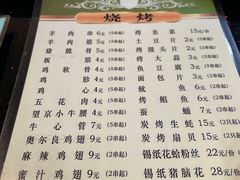 烧烤
羊肉串 6元 (2串起) 烤韭菜 15元/份
羊肉筋 6元 (2串起) 土豆片 2元 (2串起)
羊脆骨 5元 (2串起) 烤馒头片 2元 (2串起)
板筋 4元 (2串起) 烤大蒜 3元 (2串起)
鸡软骨 5元 (2串起) 鱼豆腐 3元 (2串起)
鸡胗 4元 (2串起) 面包片 3元 (2串起)
鸡心 4元 (2串起)
五花肉 4元 (2串起) 烤鲳鱼
望京小牛腰 4元 (2串起) 烤生蚝
牛心管 7元 (5串起) 炭烤生蚝 15元 (2串起)
奥尔良鸡翅 9元 (2串起) 炭烤扇贝 15元 (2串起)
麻辣鸡翅 9元 (2串起) 锡纸花蛤粉丝 22元/份
蜜汁鸡翅 9元 (2串起) 锡纸猪脑花 28元/份